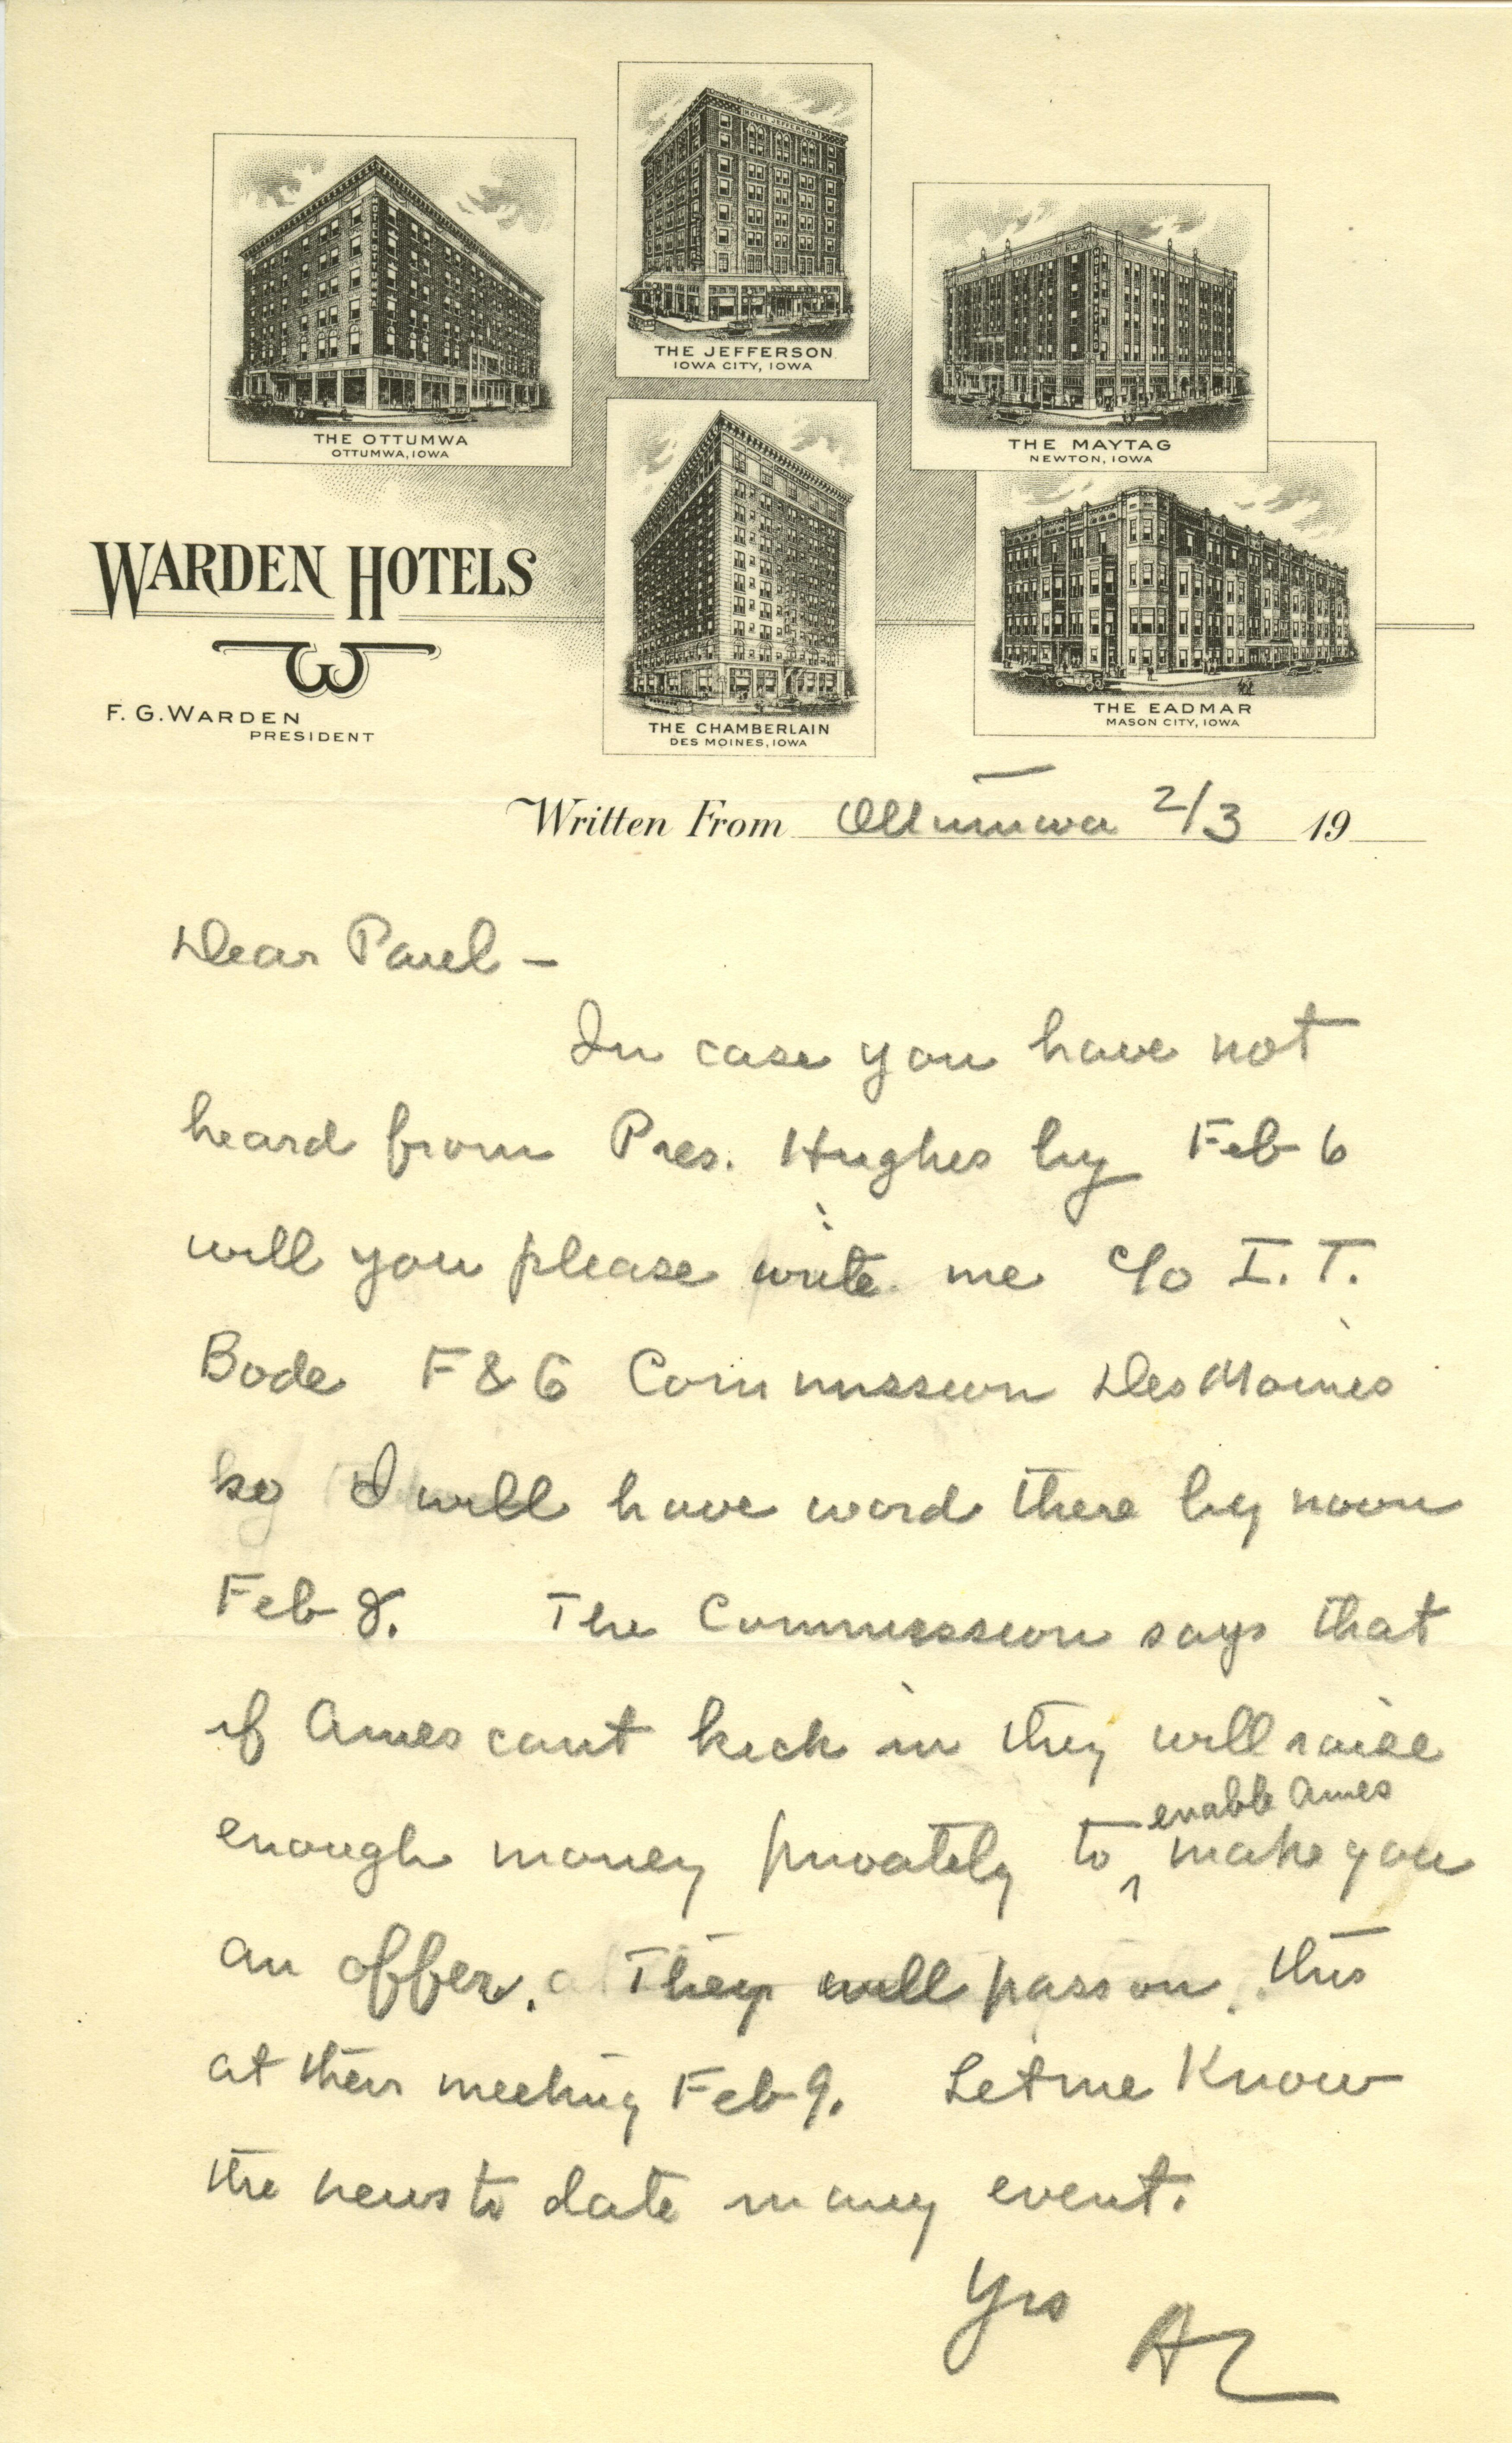 HOTEL JEFFERSON
THE OTTUMWA
OTTUMWA, IOWA
THE JEFFERSON
IOWA CITY, IOWA
THE MAYTAG
NEWTON, IOWA
THE CHAMBERLAIN
DES MOINES, IOWA
THE EADMAR
MASON CITY, IOWA
WARDEN HOTELS
F. G. WARDEN
PRESIDENT
Written From Ottumwa 2/3 19
Dear Paul –
In case you have not
heard from Pres. Hughes by Feb 6
will you please write me c/o I. T.
Bode F & G Commission Des Moines
so I will have word there by noon
Feb 8. The Commission says that
if Ames cant kick in they will raise
enable Ames
enough money privately to ^ make you
an offer. They will pass on this
at their meeting Feb 9. Let me know
the news to date in any event.
Yrs AL